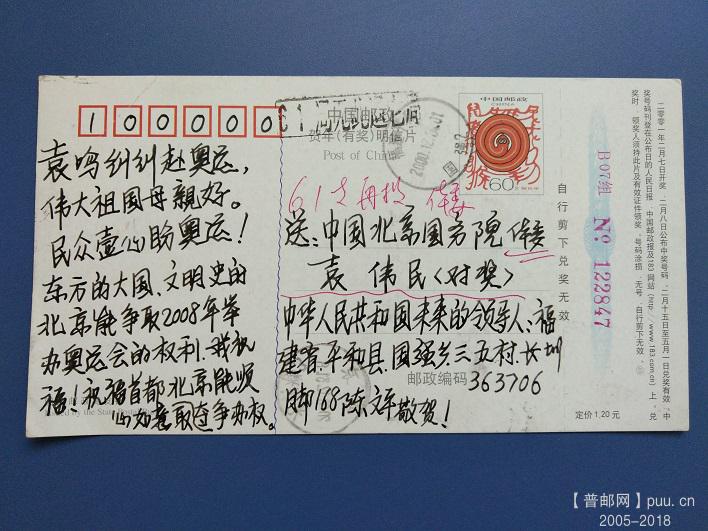 100000
中国邮政
贺年(有奖)明信片
Post of China
2000.12.
中国邮政
60分
袁鸣纠纠赴奥运,
伟大祖国母親好。
民众壹心盼奥运!
东方的大国、文明史的
北京能争取2008年举
办奥运会的权利.我祝
福!祝福首都北京能顺
心为意取迳争办权。
61支再投 体委
送:中国北京国务院 体委
袁 伟民(对奖)
中华人民共和国未来的领导人:福
建省.平和县.国强乡三五村.长圳
脚168陈文 敬贺!
邮政编码 363706
by the State
定价1.20元
自行剪下兑奖无效
B07组 No 122847
二零零一年二月七日开奖 二月八日公布中奖号码 二月十五日至五月一日兑奖有效 中
奖号码刊登在公布日的人民日报、中国邮政报及183网站(http://www.183.com.cn)上 兑
奖时 领奖人须持此片及有效证件领奖 号码涂损 无号 自行剪下无效
【普邮网】puu.cn
2005-2018